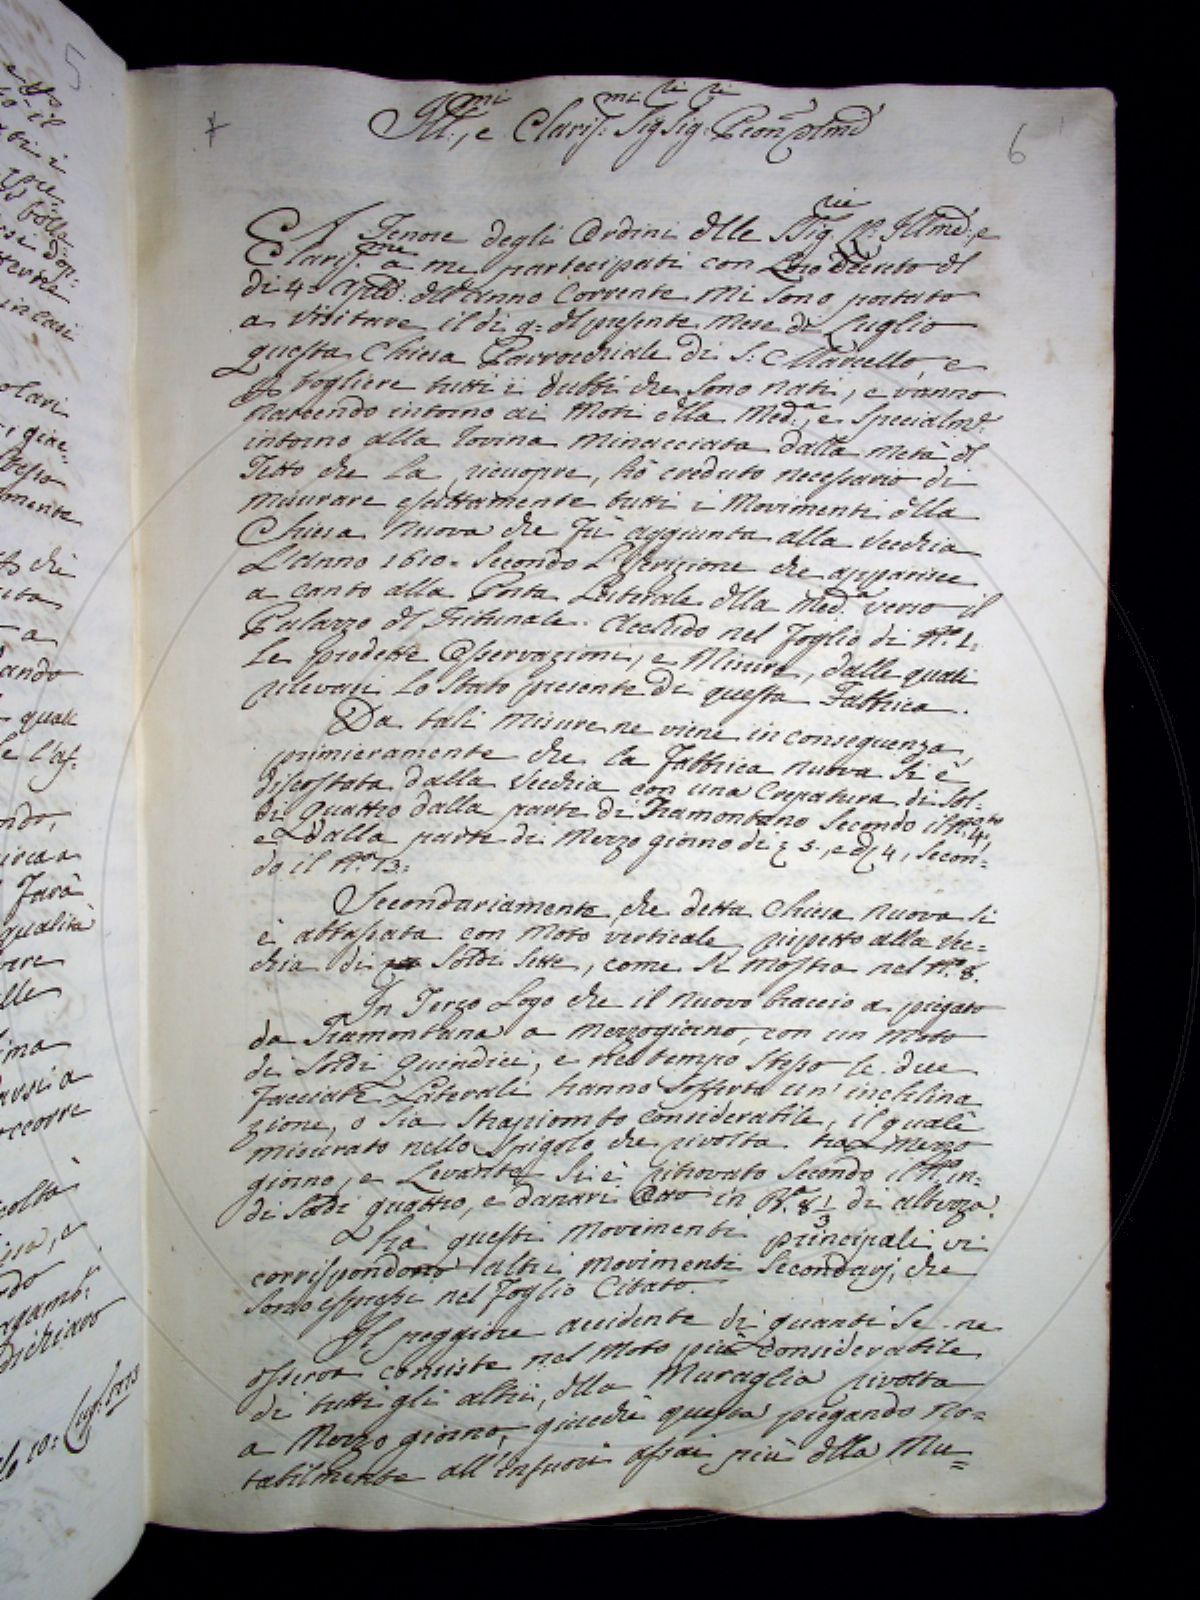 6
Ill.mi, e Claris.mi Sig.ri Sig.ri Pron. Colmi
A Tenore degli Ordini dlle Sig.rie V.re Illme, e
Claris.me a me partecipati con Loro Decreto dl
di 4. dell'Anno Corrente mi sono portato
a Visitare il di 9. dl presente Mese di Luglio
questa Chiesa Parrocchiale di S. Marcello, e
p togliere tutti i dubbi che sono nati, e vanno
nascendo intorno ai Moti dlla Med.a, e Specialm.e
intorno alla rovina minacciata dalla metà dl
Tetto che la ricuopre, hò creduto necessario di
misurare esattamente tutti i Movimenti dlla
Chiesa nuova che fù aggiunta alla Vecchia
L'Anno 1610. Secondo L'Iscrizione che apparisce
a canto alla Porta Laterale dlla Med.a verso il
Palazzo dl Tribunale. Accludo nel foglio di N.o 1.
Le prodette Osservazioni, e Misure, dalle quali
rilevasi Lo Stato presente di questa Fabbrica.
Da tali misure ne viene in conseguenza,
primieramente che la Fabbrica nuova si è
discostata dalla Vecchia con una Crepatura di Sol-
di quattro dalla parte di Tramontano Secondo il N.o 4,
e dalla parte di Mezzo giorno di 3, e 4, Secon-
do il N.o 13.
Secondariamente che detta Chiesa nuova si
è abbassata con moto verticale rispetto alla Vec-
chia di Soldi Sette, come si mostra nel N.o 8.
In Terzo Logo che il nuovo braccio a piegato
da Tramontana a mezzogiorno, con un Moto
di Soldi Quindici, e nel tempo stesso le due
facciate Laterali hanno sofferto un'inchlina
zione, o sia Strapiombo considerabile, il quale
misurato nello Spigolo che rivolta tra Mezzo
giorno, e Levante si è ritrovato secondo il N.o in-
di Soldi quattro, e danari Otto in B.a 8 1/3 di altezza.
A questi movimenti principali vi
corrispondono altri movimenti Secondarj, che
sono espressi nel foglio Citato.
Il peggiore accidente di quanti se ne
osserva consiste nel Moto più considerabile
di tutti gli altri, dlla Muraglia rivolta
a Mezzo giorno, giacchè questa piegando no-
tabilmente all'Infuori assai più dlla Mu=